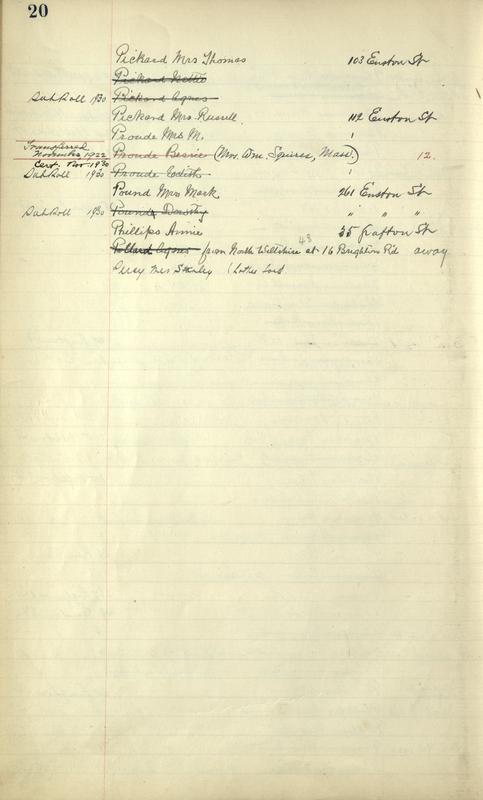 20
Pickard Mrs Thomas 103 Euston St
Pickard Nettie
Sub Roll 1930 Pickard Agnes
Pickard Mrs. Russell. 112 Euston St
Proude Mrs M. "
Transferred
November 1922 Proude Bessie (Mrs. Wm. Squires, Mass.) 12.
Cert. Nov. 1930
Sub Roll 1930 Proude Edith "
Pound Mrs Mark. 261 Euston St
Sub Roll 1930 Pound, Dorothy " " "
Phillips Annie 35 Grafton St
43
Pollard Agnes from North Wiltshire at 16 Brighton Rd away
Mrs Stanley